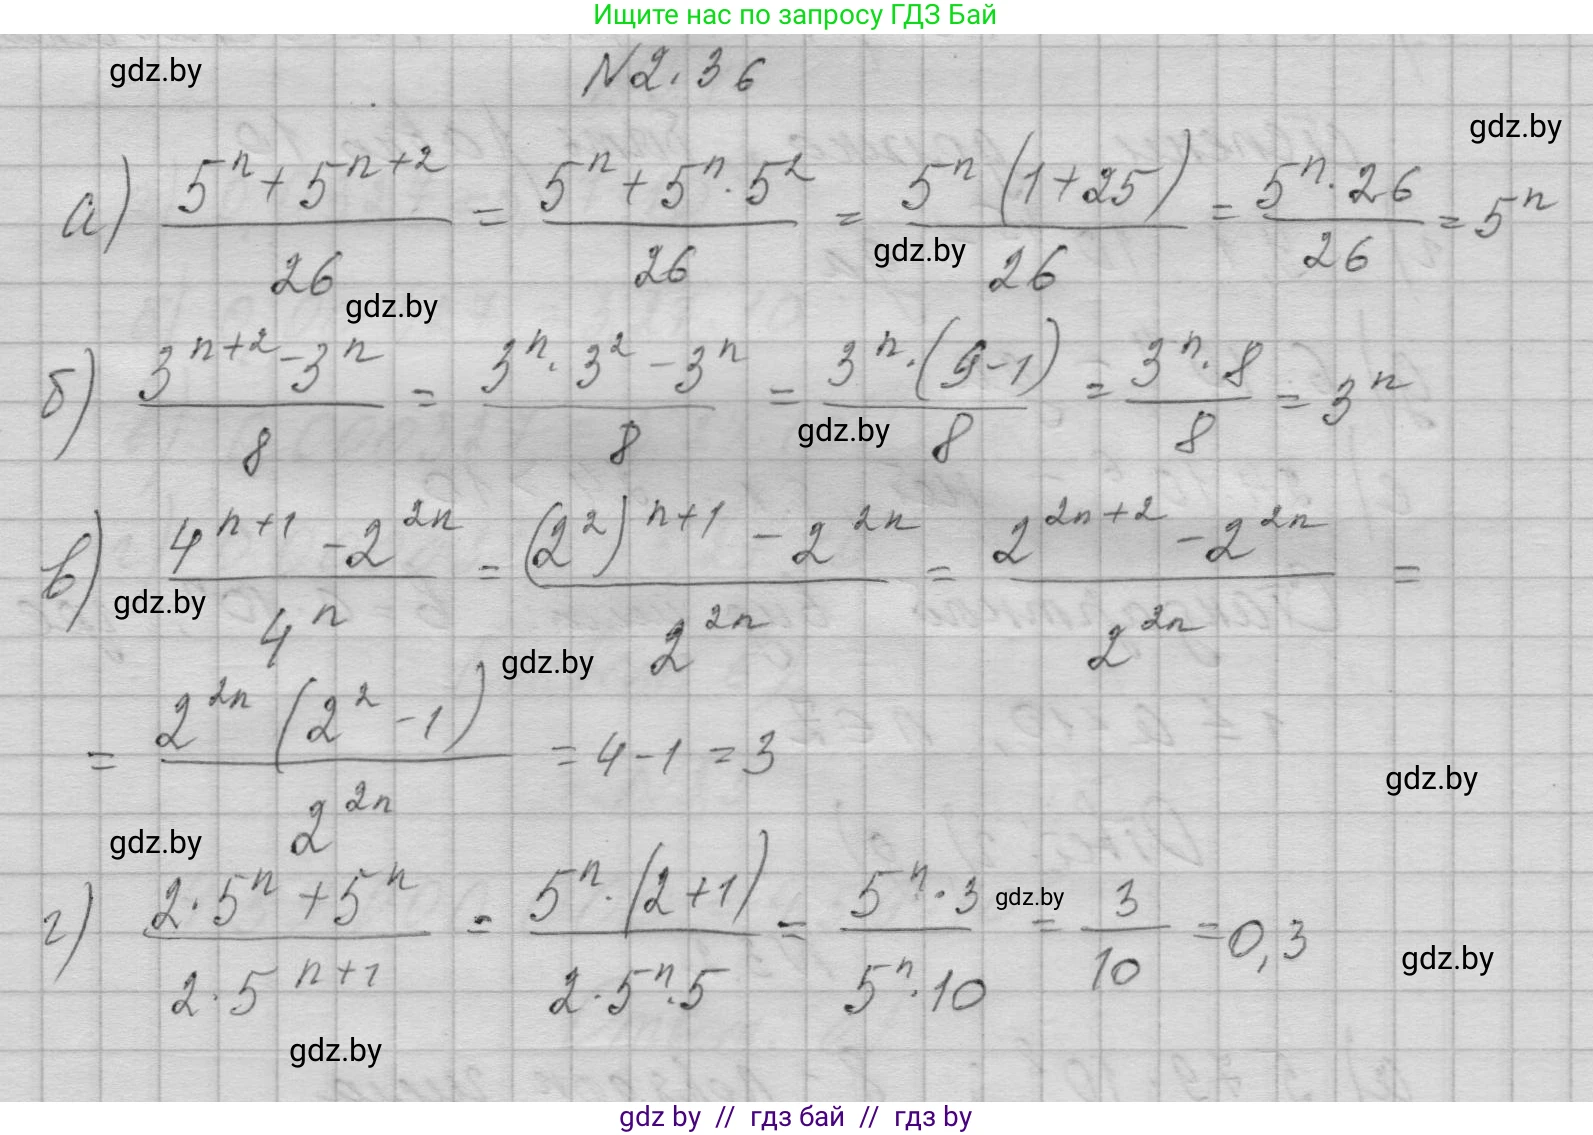 Ищите нас по запросу ГДЗ Бай
gdz.by
N2.36
gdz.by
а) (5^n + 5^{n+2})/26 = (5^n + 5^n · 5^2)/26 = (5^n (1 + 25))/26 = (5^n · 26)/26 = 5^n
gdz.by
gdz.by
б) (3^{n+2} - 3^n)/8 = (3^n · 3^2 - 3^n)/8 = (3^n · (9 - 1))/8 = (3^n · 8)/8 = 3^n
gdz.by
в) (4^{n+1} - 2^{2n})/4^n = ((2^2)^{n+1} - 2^{2n})/2^{2n} = (2^{2n+2} - 2^{2n})/2^{2n} =
gdz.by
gdz.by
= (2^{2n} (2^2 - 1))/2^{2n} = 4 - 1 = 3
gdz.by
gdz.by
г) (2 · 5^n + 5^n)/(2 · 5^{n+1}) = (5^n · (2 + 1))/(2 · 5^n · 5) = (5^n · 3)/(5^n · 10) = 3/10 = 0,3
gdz.by
gdz.by
gdz.by
gdz by // гдз бай // гдз by